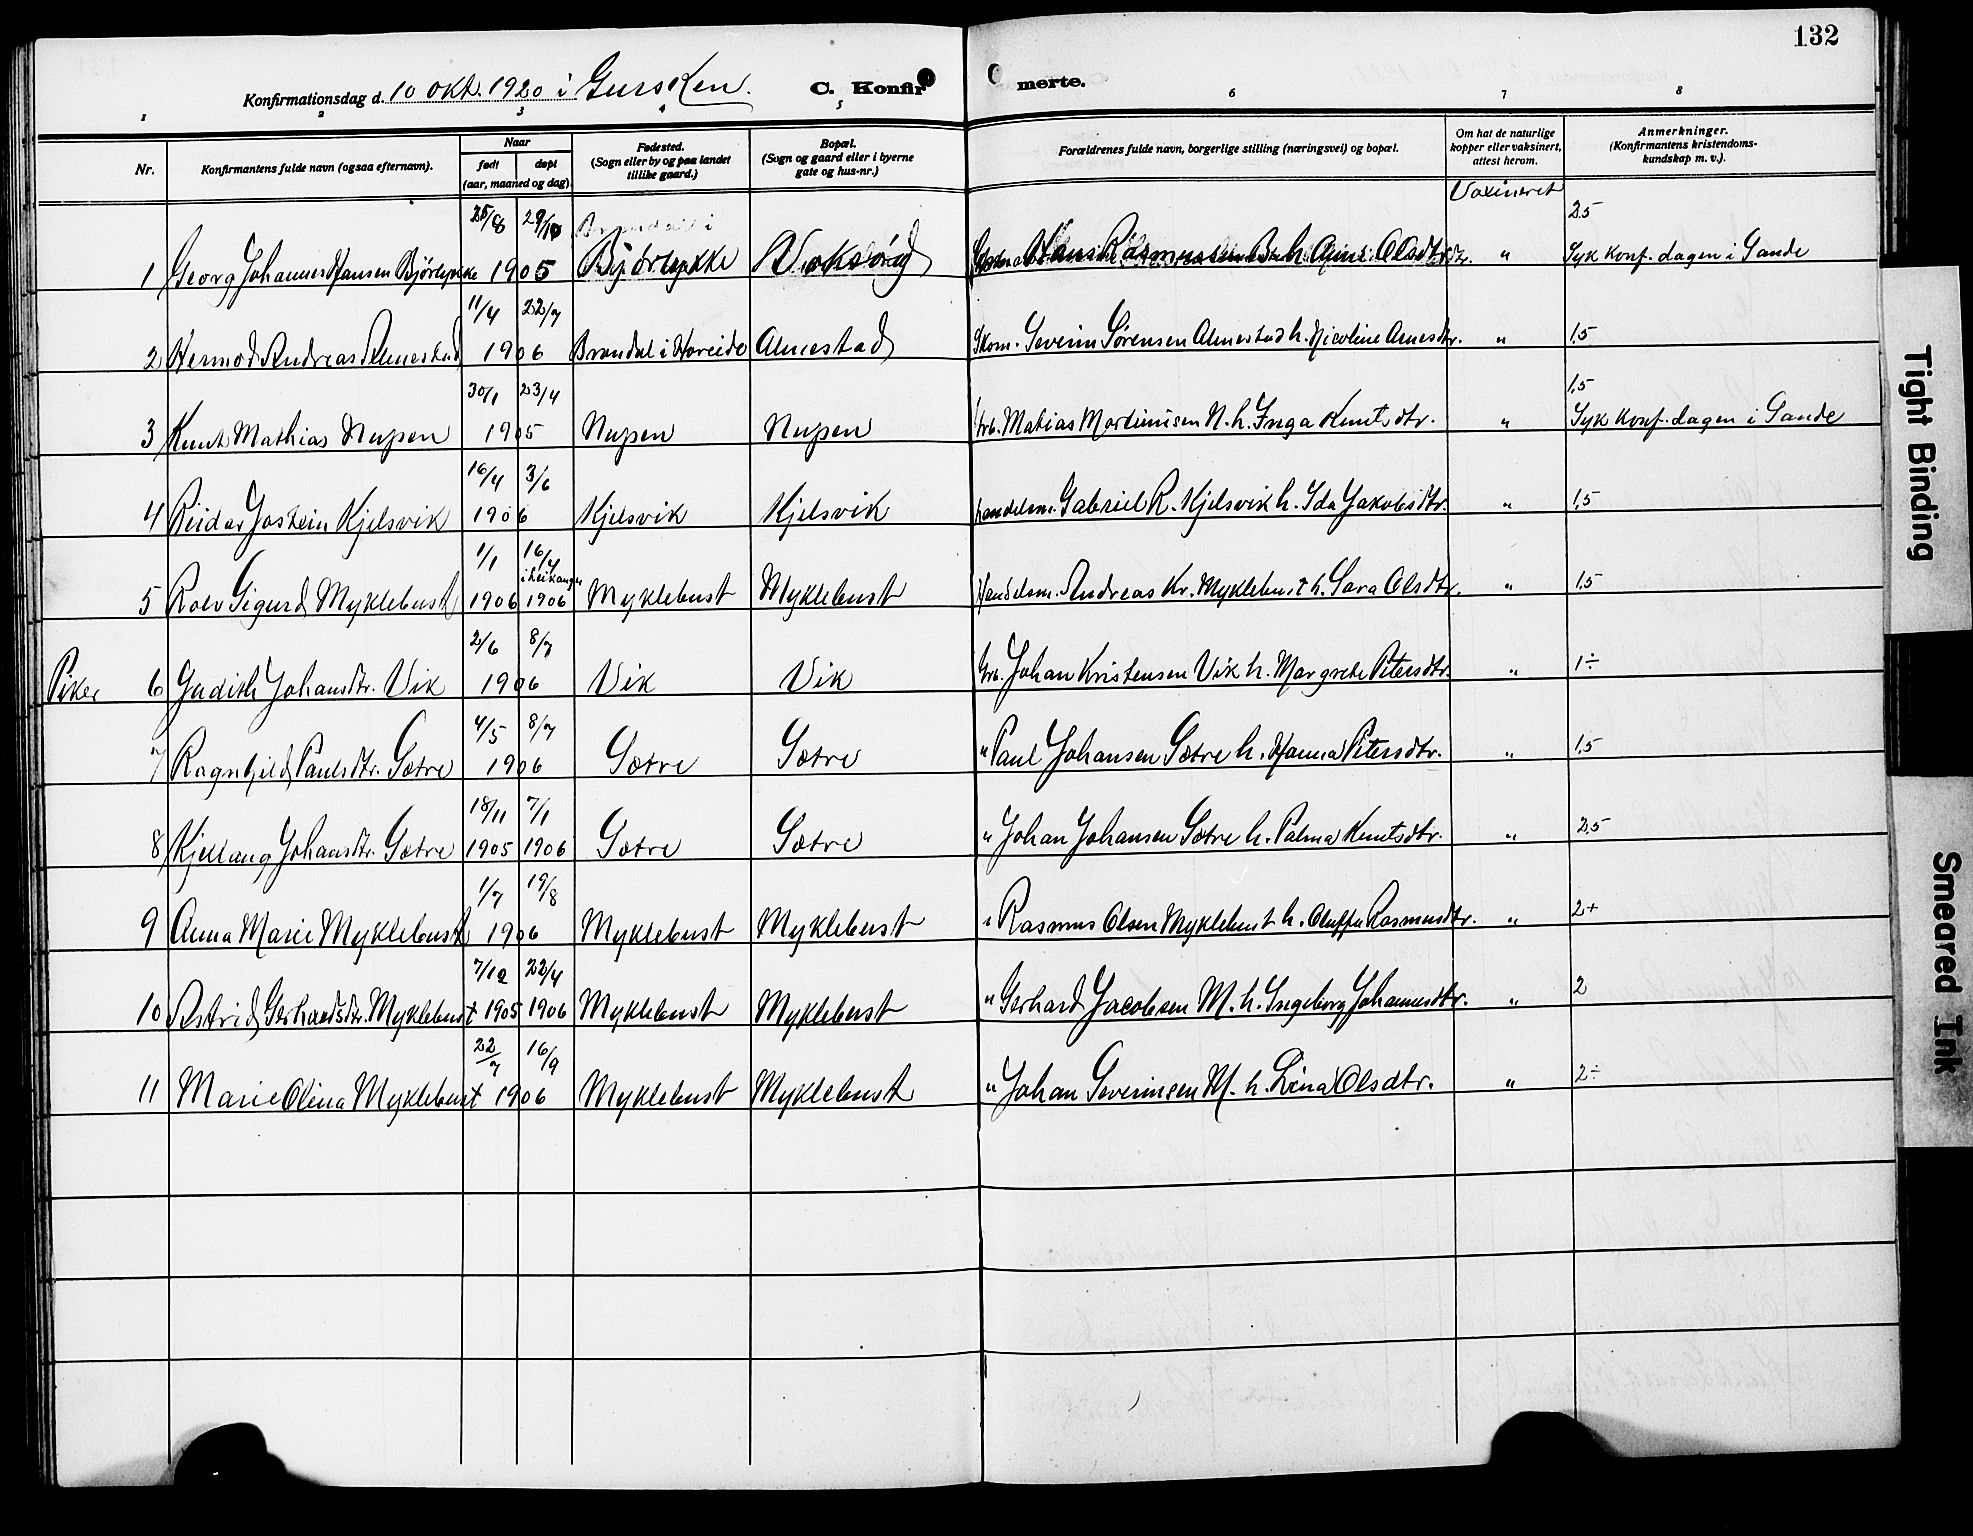 132
Konfirmationsdag d. 10 okt. 1920 i Gursken. C. Konfirmerte.
1 2 3 4 5 6 7 8
Nr. Konfirmantens fulde navn (ogsaa efternavn). Naar født døpt (aar, maaned og dag). Fødested. (Sogn eller by og paa landet tillike gaard.) Bopæl. (Sogn og gaard eller i byerne gate og hus-nr.) Forældrenes fulde navn, borgerlige stilling (næringsvei) og bopæl. Om hat de naturlige kopper eller vaksinert, attest herom. Anmerkninger. (Konfirmantens kristendomskundskap m. v.).
Vaxineret
25/8 29/10 2,5
1 Georg Johannes Hansen Bjørlykke 1905 Bjørlykke Voksøyd Hans Rasmussen h. Olsdtr. " Syk konf. dagen i Sande
11/4 22/7
2 Hermod Andreas Almestad 1906 Brandal i Hareide Almestad Skom. Severin Sørensen Almestad h. Nicoline Arnesdtr. " 1,5
30/1 23/4 1,5
3 Knut Mathias Nupen 1905 Nupen Nupen Grb. Matias Martinusen N. h. Inga Knutsdtr. " Syk konf. dagen i Sande
16/4 3/6
4 Reidar Jostein Kjelsvik 1906 Kjelsvik Kjelsvik Handelsm. Gabriel R. Kjelsvik h. Ida Jakobsdtr. " 1,5
1/1 16/4 i Leikanger
5 Rolv Sigurd Myklebust 1906 1906 Myklebust Myklebust Handelsm. Andreas Kr. Myklebust h. Sara Olsdtr. " 1,5
2/6 8/7
Piker 6 Gudith Johansdtr. Vik 1906 Vik Vik Grb. Johan Kristensen Vik h. Margrete Petersdtr. " 1÷
4/5 8/7
7 Ragnhild Paulsdtr. Sætre 1906 Sætre Sætre " Paul Johansen Sætre h. Hanna Petersdtr. " 1,5
18/11 7/1
8 Kjellaug Johansdtr. Sætre 1905 1906 Sætre Sætre " Johan Johansen Sætre h. Palma Knutsdtr. " 2,5
1/7 19/8
9 Anna Marie Myklebust 1906 Myklebust Myklebust " Rasmus Olsen Myklebust h. Oluffa Rasmusdtr. " 2+
7/12 22/4
10 Astrid Gerhardsdtr. Myklebust 1905 1906 Myklebust Myklebust " Gerhard Jacobsen M. h. Ingeborg Johannesdtr. " 2
22/7 16/9
11 Marie Olina Myklebust 1906 Myklebust Myklebust " Johan Severinsen M. h. Lina Olsdtr. " 2÷
Tight Binding
Smeared Ink